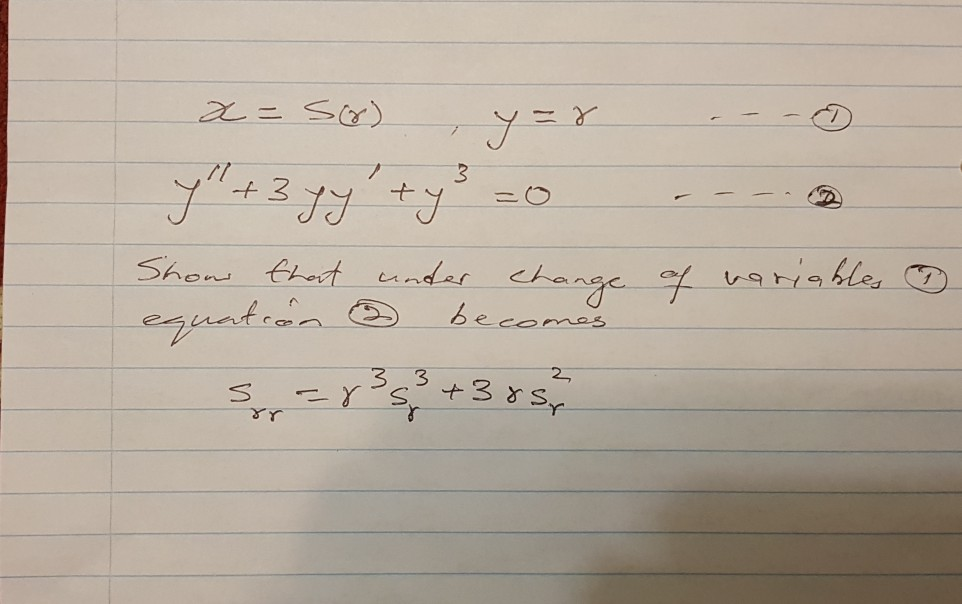 x = S(r) , y = r - - - ①
y'' + 3yy' + y³ = 0 - - - - ②
Show that under change of variables ①
equation ② becomes
S_rr = r³S_r³ + 3rS_r²